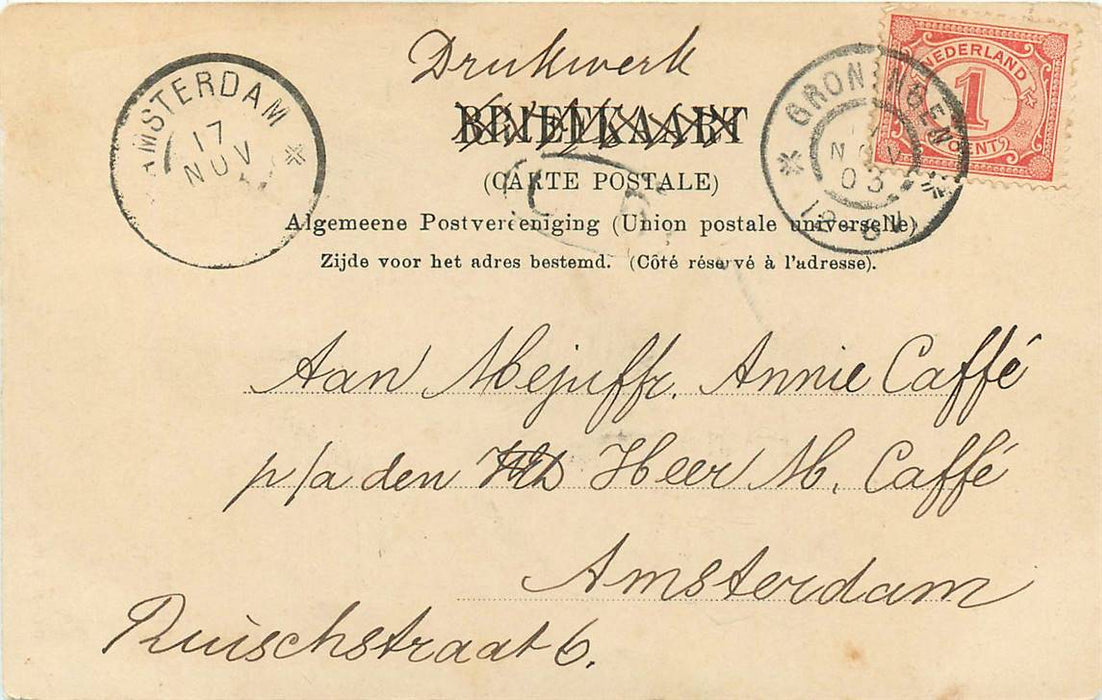 Drukwerk
BRIEFKAART
(CARTE POSTALE)
Algemeene Postvereeniging (Union postale universelle)
Zijde voor het adres bestemd. (Côté réservé à l'adresse).
AMSTERDAM
17
NOV
GRONINGEN
NOV
03
NEDERLAND
1
CENT
Aan Mejuffr. Annie Caffé
p/a den Heer M. Caffé
Amsterdam
Ruischstraat 6.